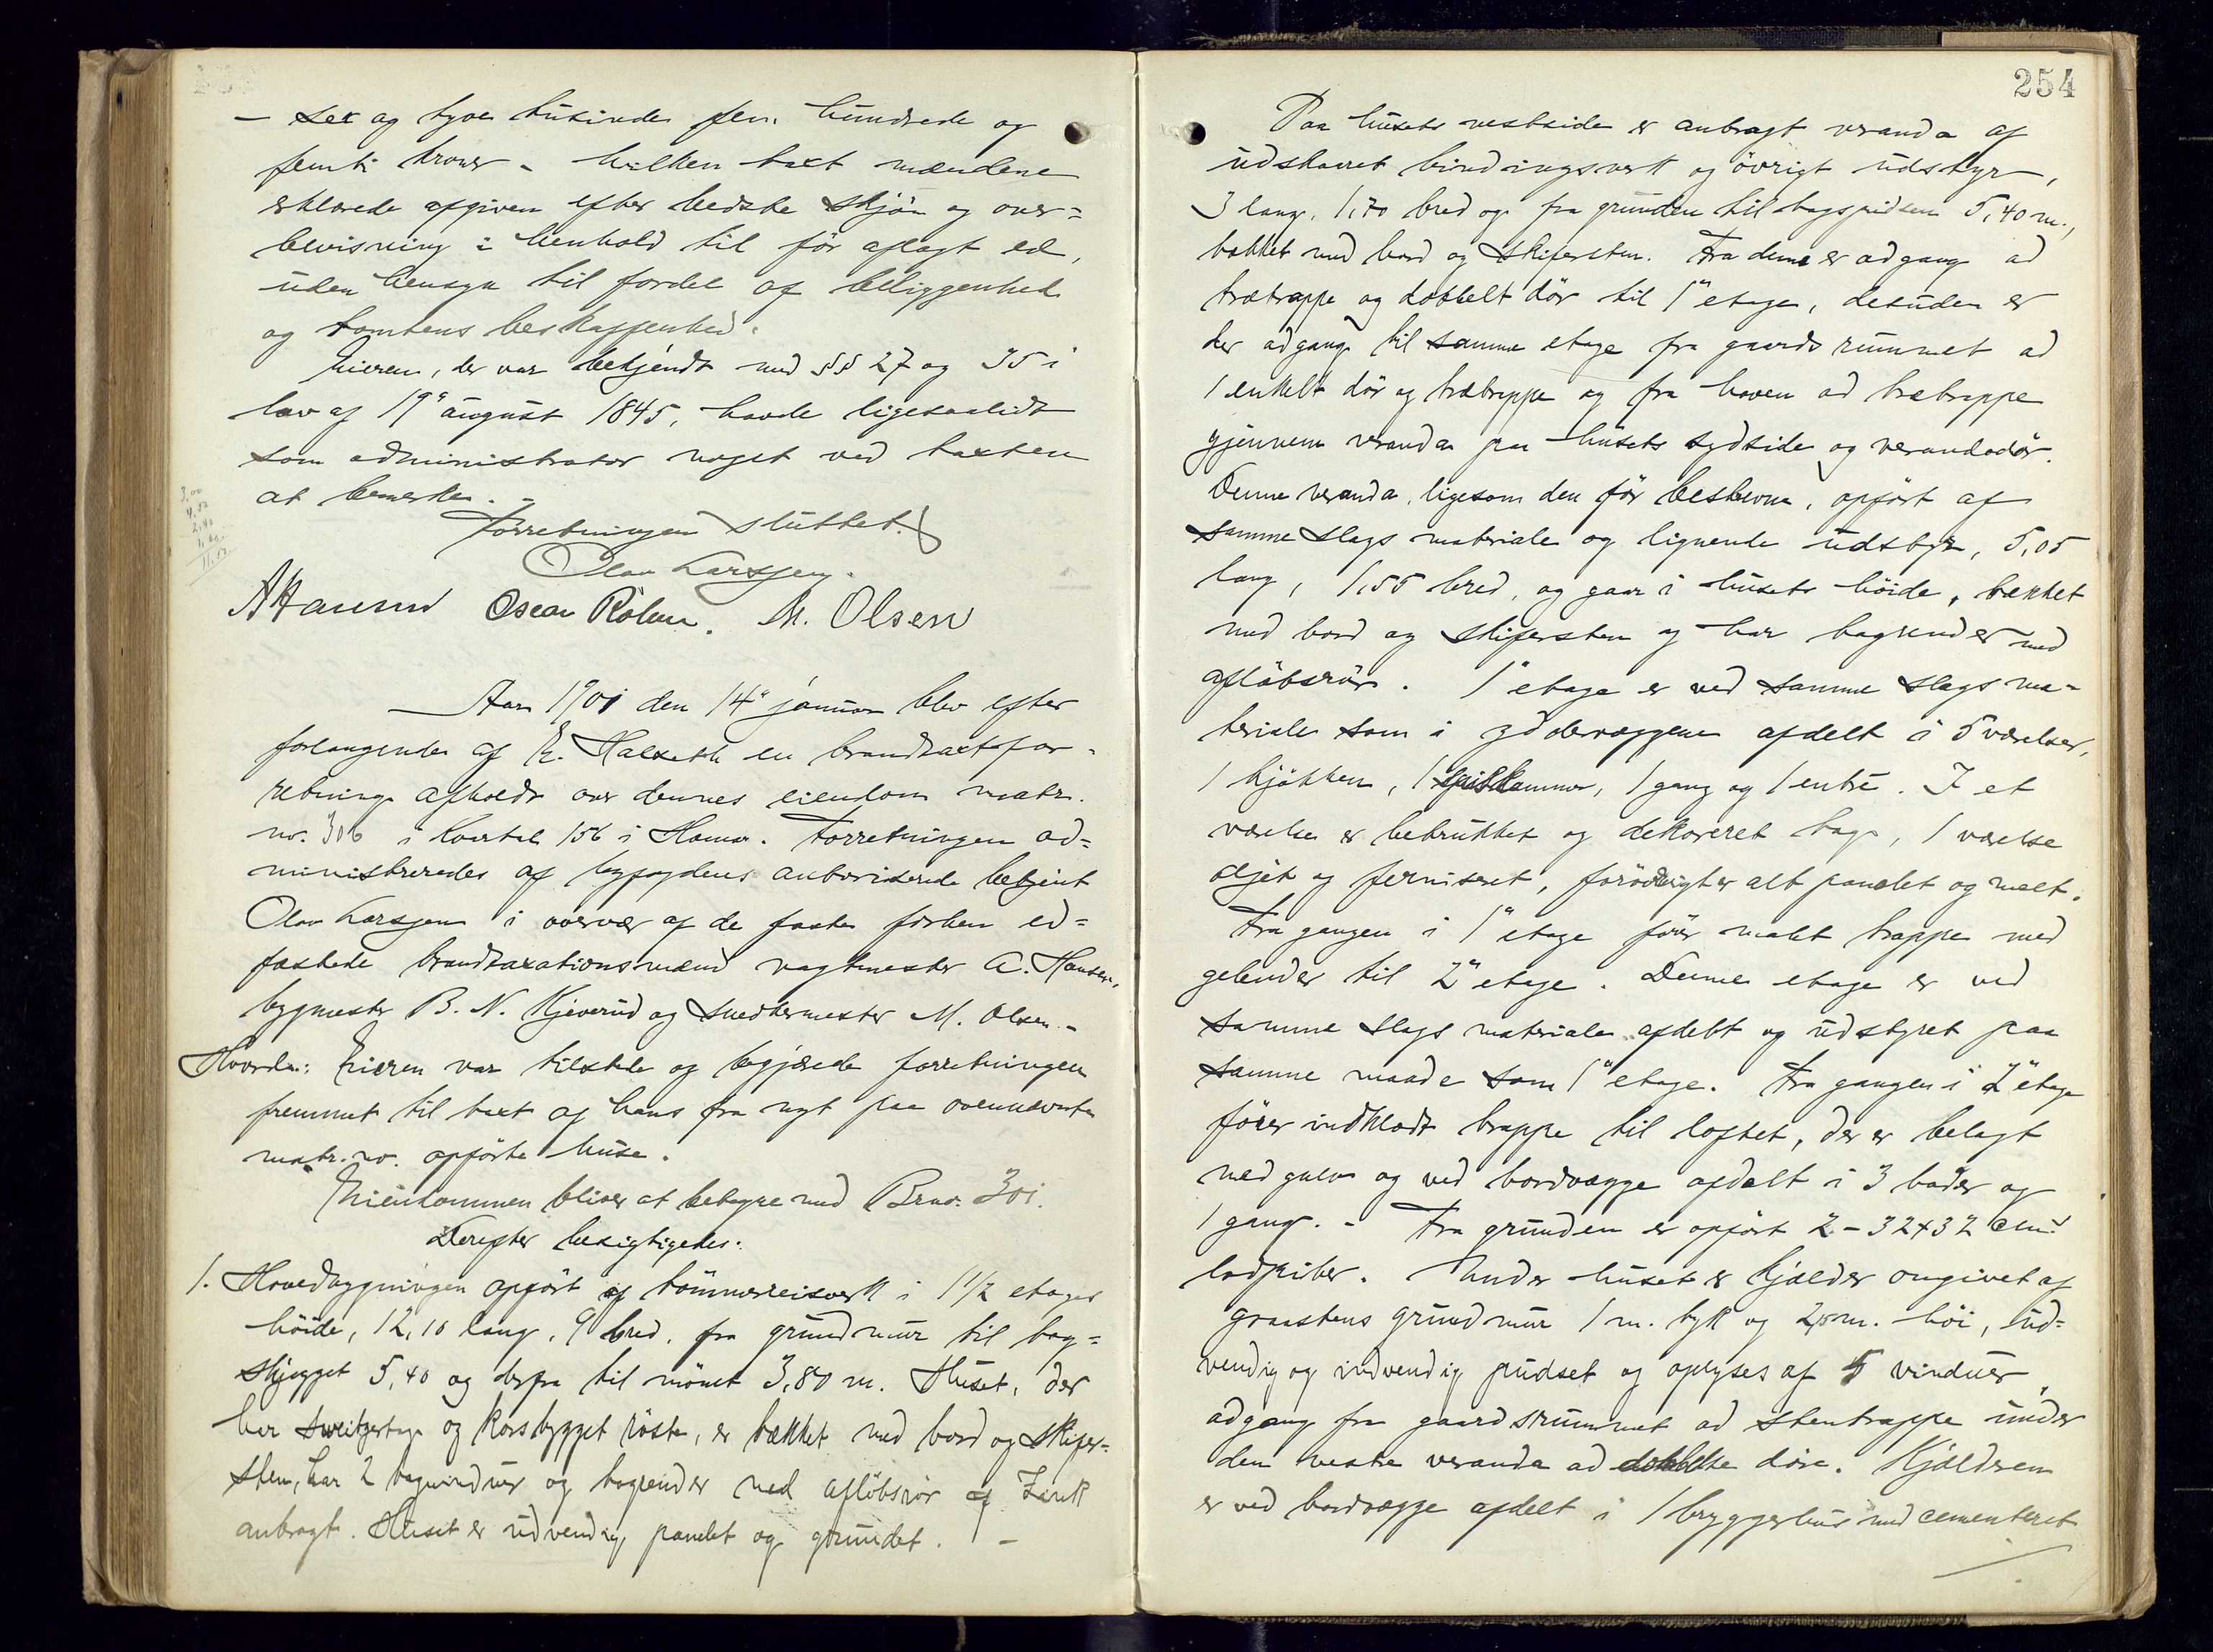 – sex og tyve tusinde fem hundrede og
femti kroner – hvilken taxt mændene
erklærede afgiven efter bedste skjön og over=
bevisning i henhold til för aflagt ed,
uden hensyn til fordel af beliggenhed
og tomtens beskaffenhed.
Eieren, der var bekjendt med §§ 27 og 35 i
lov af 19de august 1845, havde ligesaalidt
som administrator noget ved taxten
at bemerke. –
Forretningen sluttet.
Olav Larssen.
A Hansen Oscar Rölun. M. Olsen
Aar 1901 den 14de januar blev efter
forlangende af E. Halseth en brandtaxtfor-
retning afholdt over dennes eiendom matr.
no. 306 i kvartal 156 i Hamar. Forretningen ad=
ministreredes af byfogdens autoriserede betjent
Olav Larssen i overvær af de faste förhen ed=
fæstede brandtaxationsmænd vagtmester A. Hansen,
bygmester B. N. Kjeverud og snedkermester M. Olsen. –
Hvorda: Eieren var tilstede og begjærede forretningen
fremmet til taxt af hans fra nyt paa ovennævnte
matr. no. opförte huse.
Eiendommen bliver at betegne med Brno. 301.
Derefter besigtigedes:
1. Hovedbygningen opfört af tömmerreisverk i 1 1/2 etages
höide, 12,10 lang, 9 bred, fra grundmur til tag=
skjegget 5,40 og derfra til mönet 3,80 m. Huset, der
har sweitzertag og korsbygget röste, er tækket med bord og skifer=
sten, har 2 tagvinduer og tagrender med aflöbsrör af Zink
anbragt. Huset er udvendig panelet og grundet. –
254
Paa husets vestside er anbragt veranda af
udskaaret bindingsverk og övrigt udstyr,
3 lang, 1,70 bred og fra grunden til tagspidsen 5,40 m.,
tækket med bord og skifersten. Fra denne er adgang ad
trætrappe og dobbelt dör til 1ste etage, desuden er
der adgang til samme etage fra gaardsrummet ad
1 enkelt dör og trætrappe og fra haven ad trætrappe
gjennem veranda paa husets sydside og verandadör.
Denne veranda, ligesom den för beskrevne, opfört af
samme slags materiale og lignende udstyr, 5,05
lang, 1,55 bred, og gaar i husets höide, tækket
med bord og skifersten og har tagrender med
aflöbsrör. 1ste etage er ved samme slags ma-
teriale som i ydervæggene afdelt i 5 værelser,
1 kjökken, 1 spiskammer, 1 gang og 1 entré. I et
værelse er betrukket og dekoreret tag, 1 værelse
oljet og ferniseret, forövrigt er alt panelet og malt.
Fra gangen i 1ste etage förer malet trappe med
gelender til 2den etage. Denne etage er ved
samme slags materiale afdelt og udstyret paa
samme maade som 1ste etage. Fra gangen i 2den etage
förer indklædt trappe til loftet, der er belagt
med gulv og ved bordvægge afdelt i 3 boder og
1 gang. – Fra grunden er opfört 2 – 32+32 ctm.
lodpiber. Under huset er kjelder omgivet af
graastens grundmur 1 m. tyk og 2,5 m. höi, ud=
vendig og indvendig pudset og oplyses af 5 vinduer,
adgang fra gaardsrummet ad stentrappe under
den vestre veranda ad dobbelte döre. Kjelderen
er ved bordvægge afdelt i 1 bryggerhus med cementeret